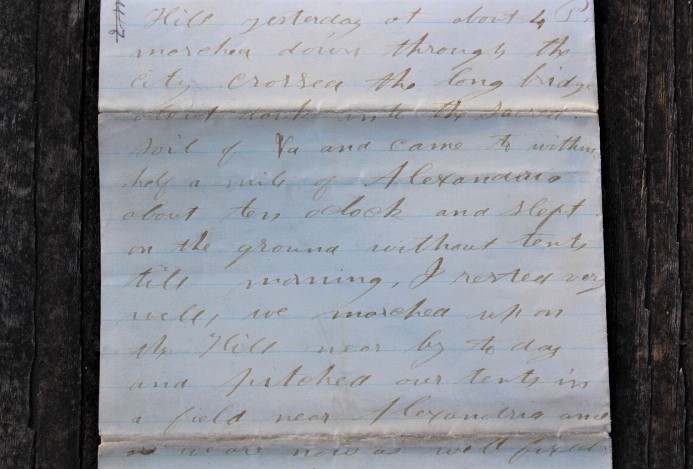 Hill yesterday at about 4 P.
marched down through the
city crossed the long bridge
about dark into the sacred
soil of Va and came to within
half a mile of Alexandria
about ten oclock and slept
on the ground without tents
till morning, I rested very
well, we marched up on
the Hill near by to day
and pitched our tents in
a field near Alexandria and
as we are now as well fixed